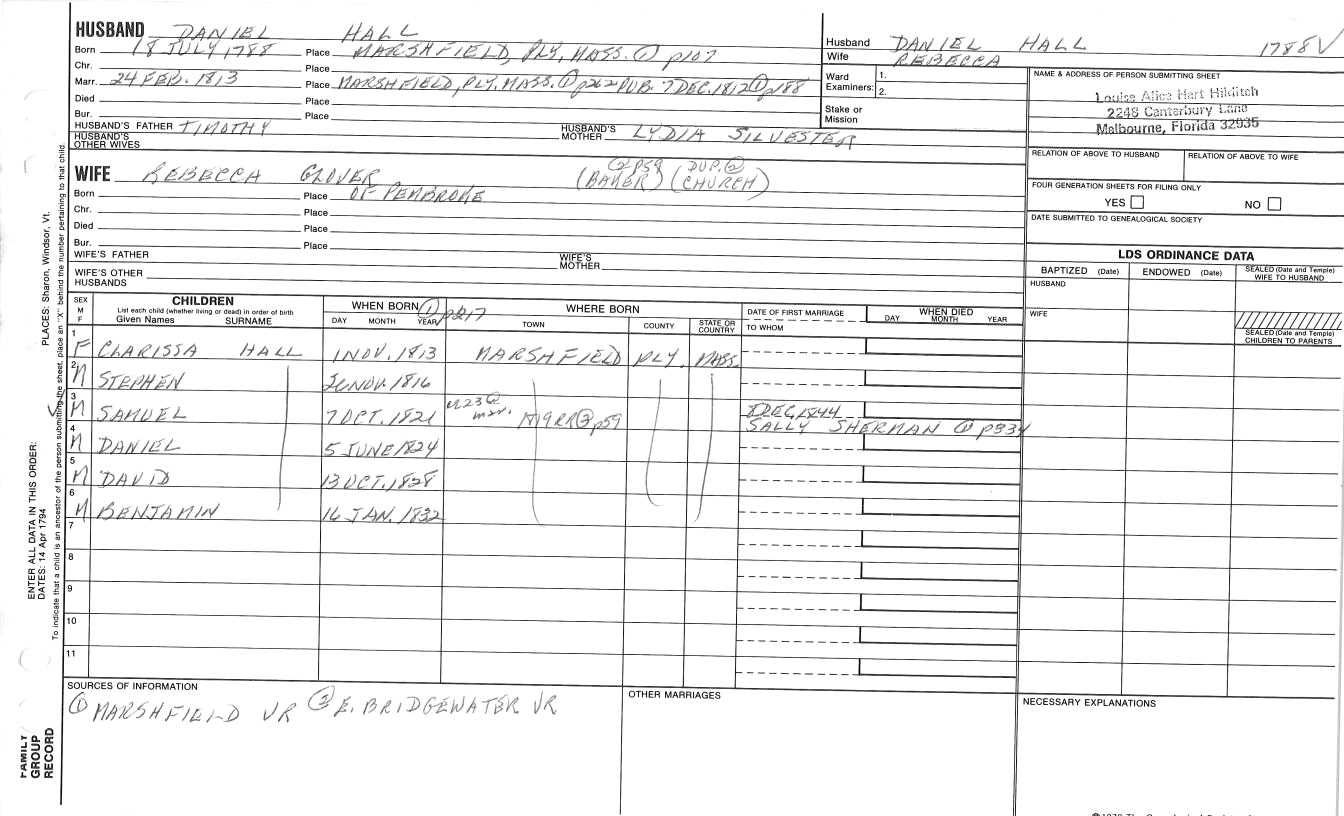 HUSBAND DANIEL HALL
Born 18 JULY 1788 Place MARSHFIELD, PLY, MASS. ① p107
Chr. Place
Marr. 24 FEB. 1813 Place MARSHFIELD, PLY, MASS. ① p262 PUB. 7 DEC. 1812 ① p188
Died Place
Bur. Place
HUSBAND'S FATHER TIMOTHY HUSBAND'S MOTHER LYDIA SILVESTER
HUSBAND'S OTHER WIVES
Husband DANIEL HALL 1788 V
Wife REBECCA
Ward Examiners: 1.
2.
Stake or Mission
NAME & ADDRESS OF PERSON SUBMITTING SHEET
Louise Alice Hart Hilditch
2248 Canterbury Lane
Melbourne, Florida 32935
RELATION OF ABOVE TO HUSBAND RELATION OF ABOVE TO WIFE
FOUR GENERATION SHEETS FOR FILING ONLY
YES NO
DATE SUBMITTED TO GENEALOGICAL SOCIETY
WIFE REBECCA GLOVER (② p59 BAKER) (DUP. ② CHURCH)
Born Place OF PEMBROKE
Chr. Place
Died Place
Bur. Place
WIFE'S FATHER WIFE'S MOTHER
WIFE'S OTHER HUSBANDS
LDS ORDINANCE DATA
BAPTIZED (Date) ENDOWED (Date) SEALED (Date and Temple) WIFE TO HUSBAND
HUSBAND
WIFE
SEALED (Date and Temple) CHILDREN TO PARENTS
SEX M F
CHILDREN
List each child (whether living or dead) in order of birth
Given Names SURNAME
WHEN BORN ① p217
DAY MONTH YEAR
WHERE BORN
TOWN COUNTY STATE OR COUNTRY
DATE OF FIRST MARRIAGE
TO WHOM
WHEN DIED
DAY MONTH YEAR
1 F CLARISSA HALL 1 NOV. 1813 MARSHFIELD PLY. MASS.
2 M STEPHEN 26 NOV. 1816
3 M SAMUEL 7 OCT. 1821 M 9RR ② p59 DEC. 1844
SALLY SHERMAN ① p334
4 M DANIEL 5 JUNE 1824
5 M DAVID 13 OCT. 1828
6 M BENJAMIN 16 JAN. 1832
7
8
9
10
11
SOURCES OF INFORMATION
① MARSHFIELD VR ② E. BRIDGEWATER VR
OTHER MARRIAGES
NECESSARY EXPLANATIONS
PLACES: Sharon, Windsor, Vt.
ENTER ALL DATA IN THIS ORDER:
DATES: 14 Apr 1794
To indicate that a child is an ancestor of the person submitting the sheet, place an "X" behind the number pertaining to that child.
FAMILY GROUP RECORD